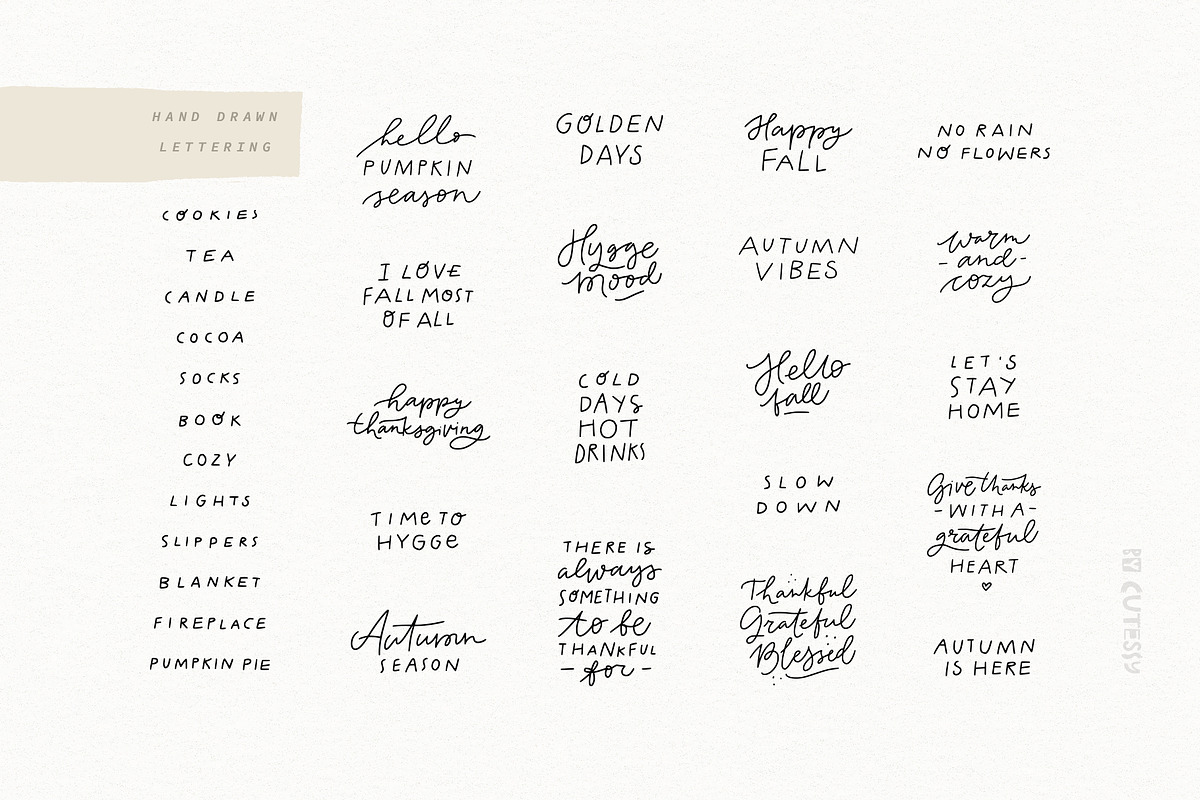 HAND DRAWN
LETTERING
COOKIES
TEA
CANDLE
COCOA
SOCKS
BOOK
COZY
LIGHTS
SLIPPERS
BLANKET
FIREPLACE
PUMPKIN PIE
hello
PUMPKIN
season
I LOVE
FALL MOST
OF ALL
happy
thanksgiving
TIMe TO
HYGGe
Autumn
SEASON
GOLDEN
DAYS
Hygge
mood
COLD
DAYS
HOT
DRINKS
THERE IS
always
SOMETHING
to be
THANKFUL
- for -
Happy
FALL
AUTUMN
VIBES
Hello
fall
SLOW
DOWN
Thankful
Grateful
Blessed
NO RAIN
NO FLOWERS
warm
- and -
cozy
LET'S
STAY
HOME
Give thanks
- WITH A -
grateful
HEART
♡
AUTUMN
IS HERE
BY CUTESSY